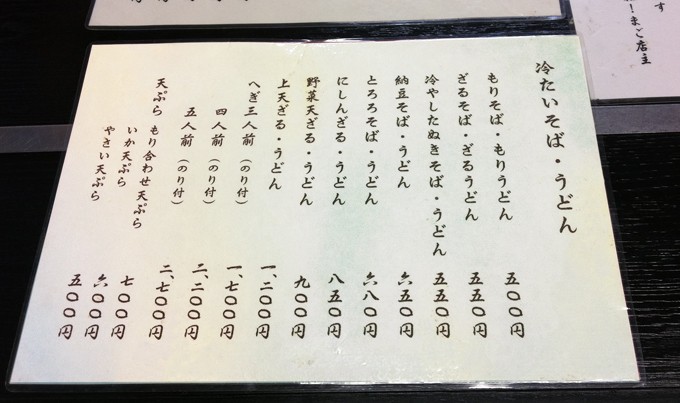 す
！まご店主
冷たいそば・うどん
もりそば・もりうどん 五〇〇円
ざるそば・ざるうどん 五五〇円
冷やしたぬきそば・うどん 五五〇円
納豆そば・うどん 六五〇円
とろろそば・うどん 六八〇円
にしんざる・うどん 八五〇円
野菜天ざる・うどん 九〇〇円
上天ざる・うどん 一、二〇〇円
へぎ三人前（のり付） 一、七〇〇円
四人前（のり付） 二、二〇〇円
五人前（のり付） 二、七〇〇円
天ぷら もり合わせ天ぷら 七〇〇円
いか天ぷら 六〇〇円
やさい天ぷら 五〇〇円